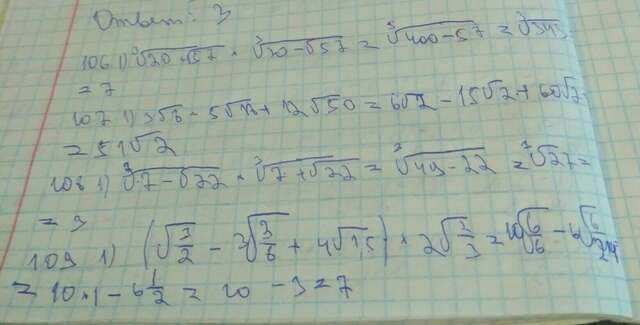 Ответ: 3
106 1) ∛(20+√57) * ∛(20-√57) = ∛(400-57) = ∛343
= 7
107 1) 3√8 - 5√18 + 12√50 = 6√2 - 15√2 + 60√2
= 51√2
108 1) ∛(7-√22) * ∛(7+√22) = ∛(49-22) = ∛27 =
= 3
109 1) (√(3/2) - 3√(3/8) + 4√1,5) * 2√(2/3) = 10√(6/6) - 6√(6/24)
= 10*1 - 6 1/2 = 10 - 3 = 7